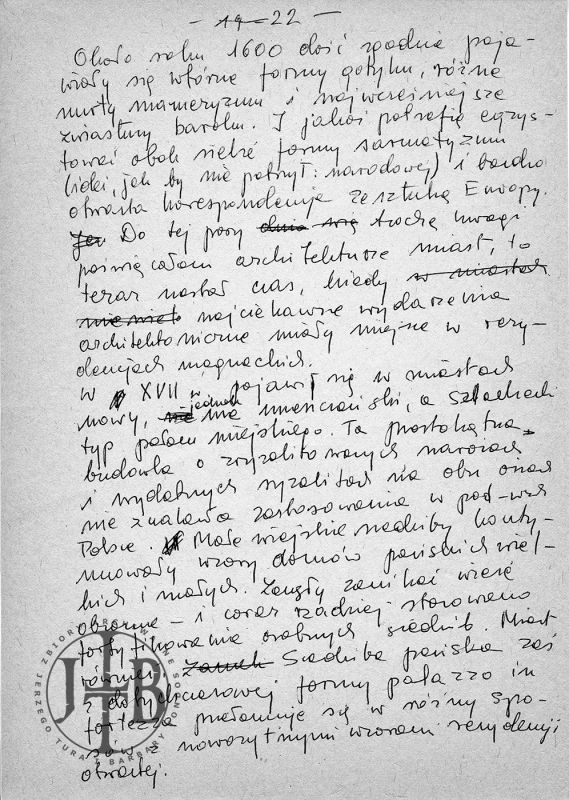 - 19 - 22 -
Około roku 1600 dość zgodnie poja-
wiały się wtórne formy gotyku, różne
nurty manieryzmu i najwcześniejsze
zwiastuny baroku. I jakoś potrafią egzys-
tować obok siebie formy sarmatyzmu
(idei, jak by nie patrzył: narodowej) i bardzo
otwarta korespondencja ze sztuką Europy.
Do tej pory trochę uwagi
poświęcałam architekturze miast, to
teraz nastał czas, kiedy w miastach
najciekawsze wydarzenia
architektoniczne miały miejsce w rezy-
dencjach magnackich.
W XVII w pojawił się w miastach
nowy, jednak nie mieszczański, a szlachecki
typ pałacu miejskiego. Ta prostokątna
budowla o zryzalitowanych narożach
i wydatnych ryzalitach na obu osiach
nie znalazła zastosowania w pod-wsch
Polsce. Małe wiejskie siedziby konty-
nuowały wzory domów pańskich wiel-
kich i małych. Zaczęły zanikać wieże
obronne - i coraz rzadziej stosowano
fortyfikowania osobnych siedzib. Miast
również. Zamek Siedziba pańska zaś
z dotychczasowej formy palazzo in
fortezza przełamuje się w różny spo-
sób z nowożytnymi wzorami rezydencji
otwartej.
JTB
ZBIORY
JERZEGO TURA I BARBARY TONDOS